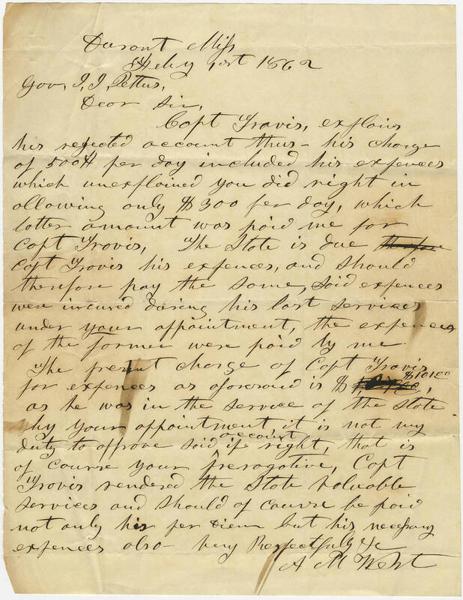 Durant Miss
Feby 1st 1862
Gov, J. J. Pettus,
Dear Sir,
Capt Travis, explains
his rejected account thus — his charge
of 500 per day included his expences
which unexplained you did right in
allowing only $300 per day, which
latter amount was paid me for
Capt Travis, The State is due
Capt Travis his expences, and should
therefore pay the same, said expences
were incured during his last services
under your appointment, the expences
of the former were paid by me
The present charge of Capt Travis
for expences as aforesaid is $
as he was in the service of the State
by your appointment it is not my
duty to approve said account if right, that is
of course your prerogative, Capt
Travis rendered the State valuable
services and should of course be paid
not only his per diem but his necessary
expences also Very Respectfully &c
A M West